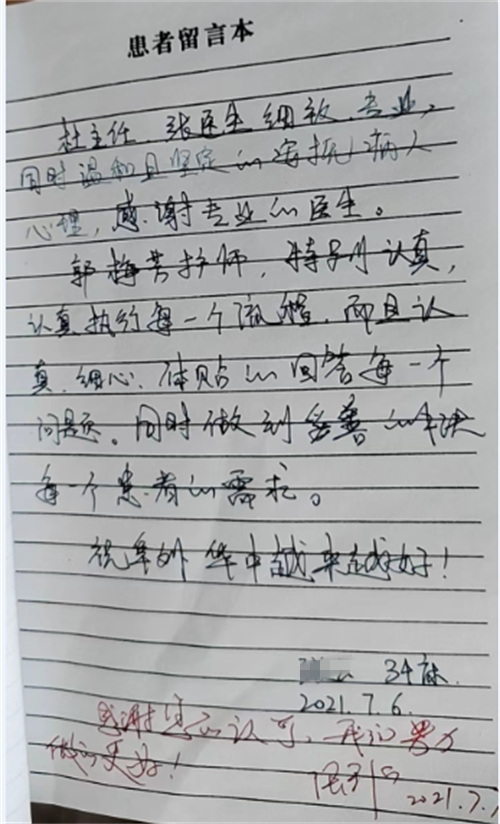 患者留言本
杜主任、张医生细致、专业，
同时温和且坚定的安抚病人
心理，感谢专业的医生。
郭梅芳护师，特别认真，
认真执行每一个流程，而且认
真、细心、体贴的回答每一个
问题。同时做到妥善的解决
每一个患者的需求。
祝阜外华中越来越好！
34床
2021.7.6.
感谢您的认可，我们努力
做的更好！
2021.7.